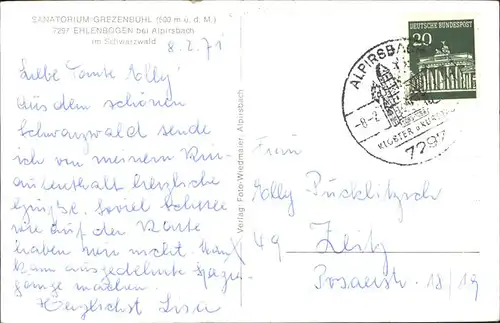 SANATORIUM GREZENBÜHL (600 m u. d. M.)
7297 EHLENBOGEN bei Alpirsbach
im Schwarzwald
8.2.71
Liebe Tante Elly!
Aus dem schönen
Schwarzwald sende
ich von meinem Kur-
aufenthalt herzliche
Grüße. Soviel Schnee
wie auf der Karte
haben wir nicht.
kann ausgedehnte Spazier-
gänge machen.
Herzlichst Lisa
Verlag: Foto-Weidmaier, Alpirsbach
DEUTSCHE BUNDESPOST
20
ALPIRSBACH
-8.-2.
KLOSTER U KUR
7297
Frau
Elly Pücklitzsch
49 Zeitz
Posaerstr. 18/19